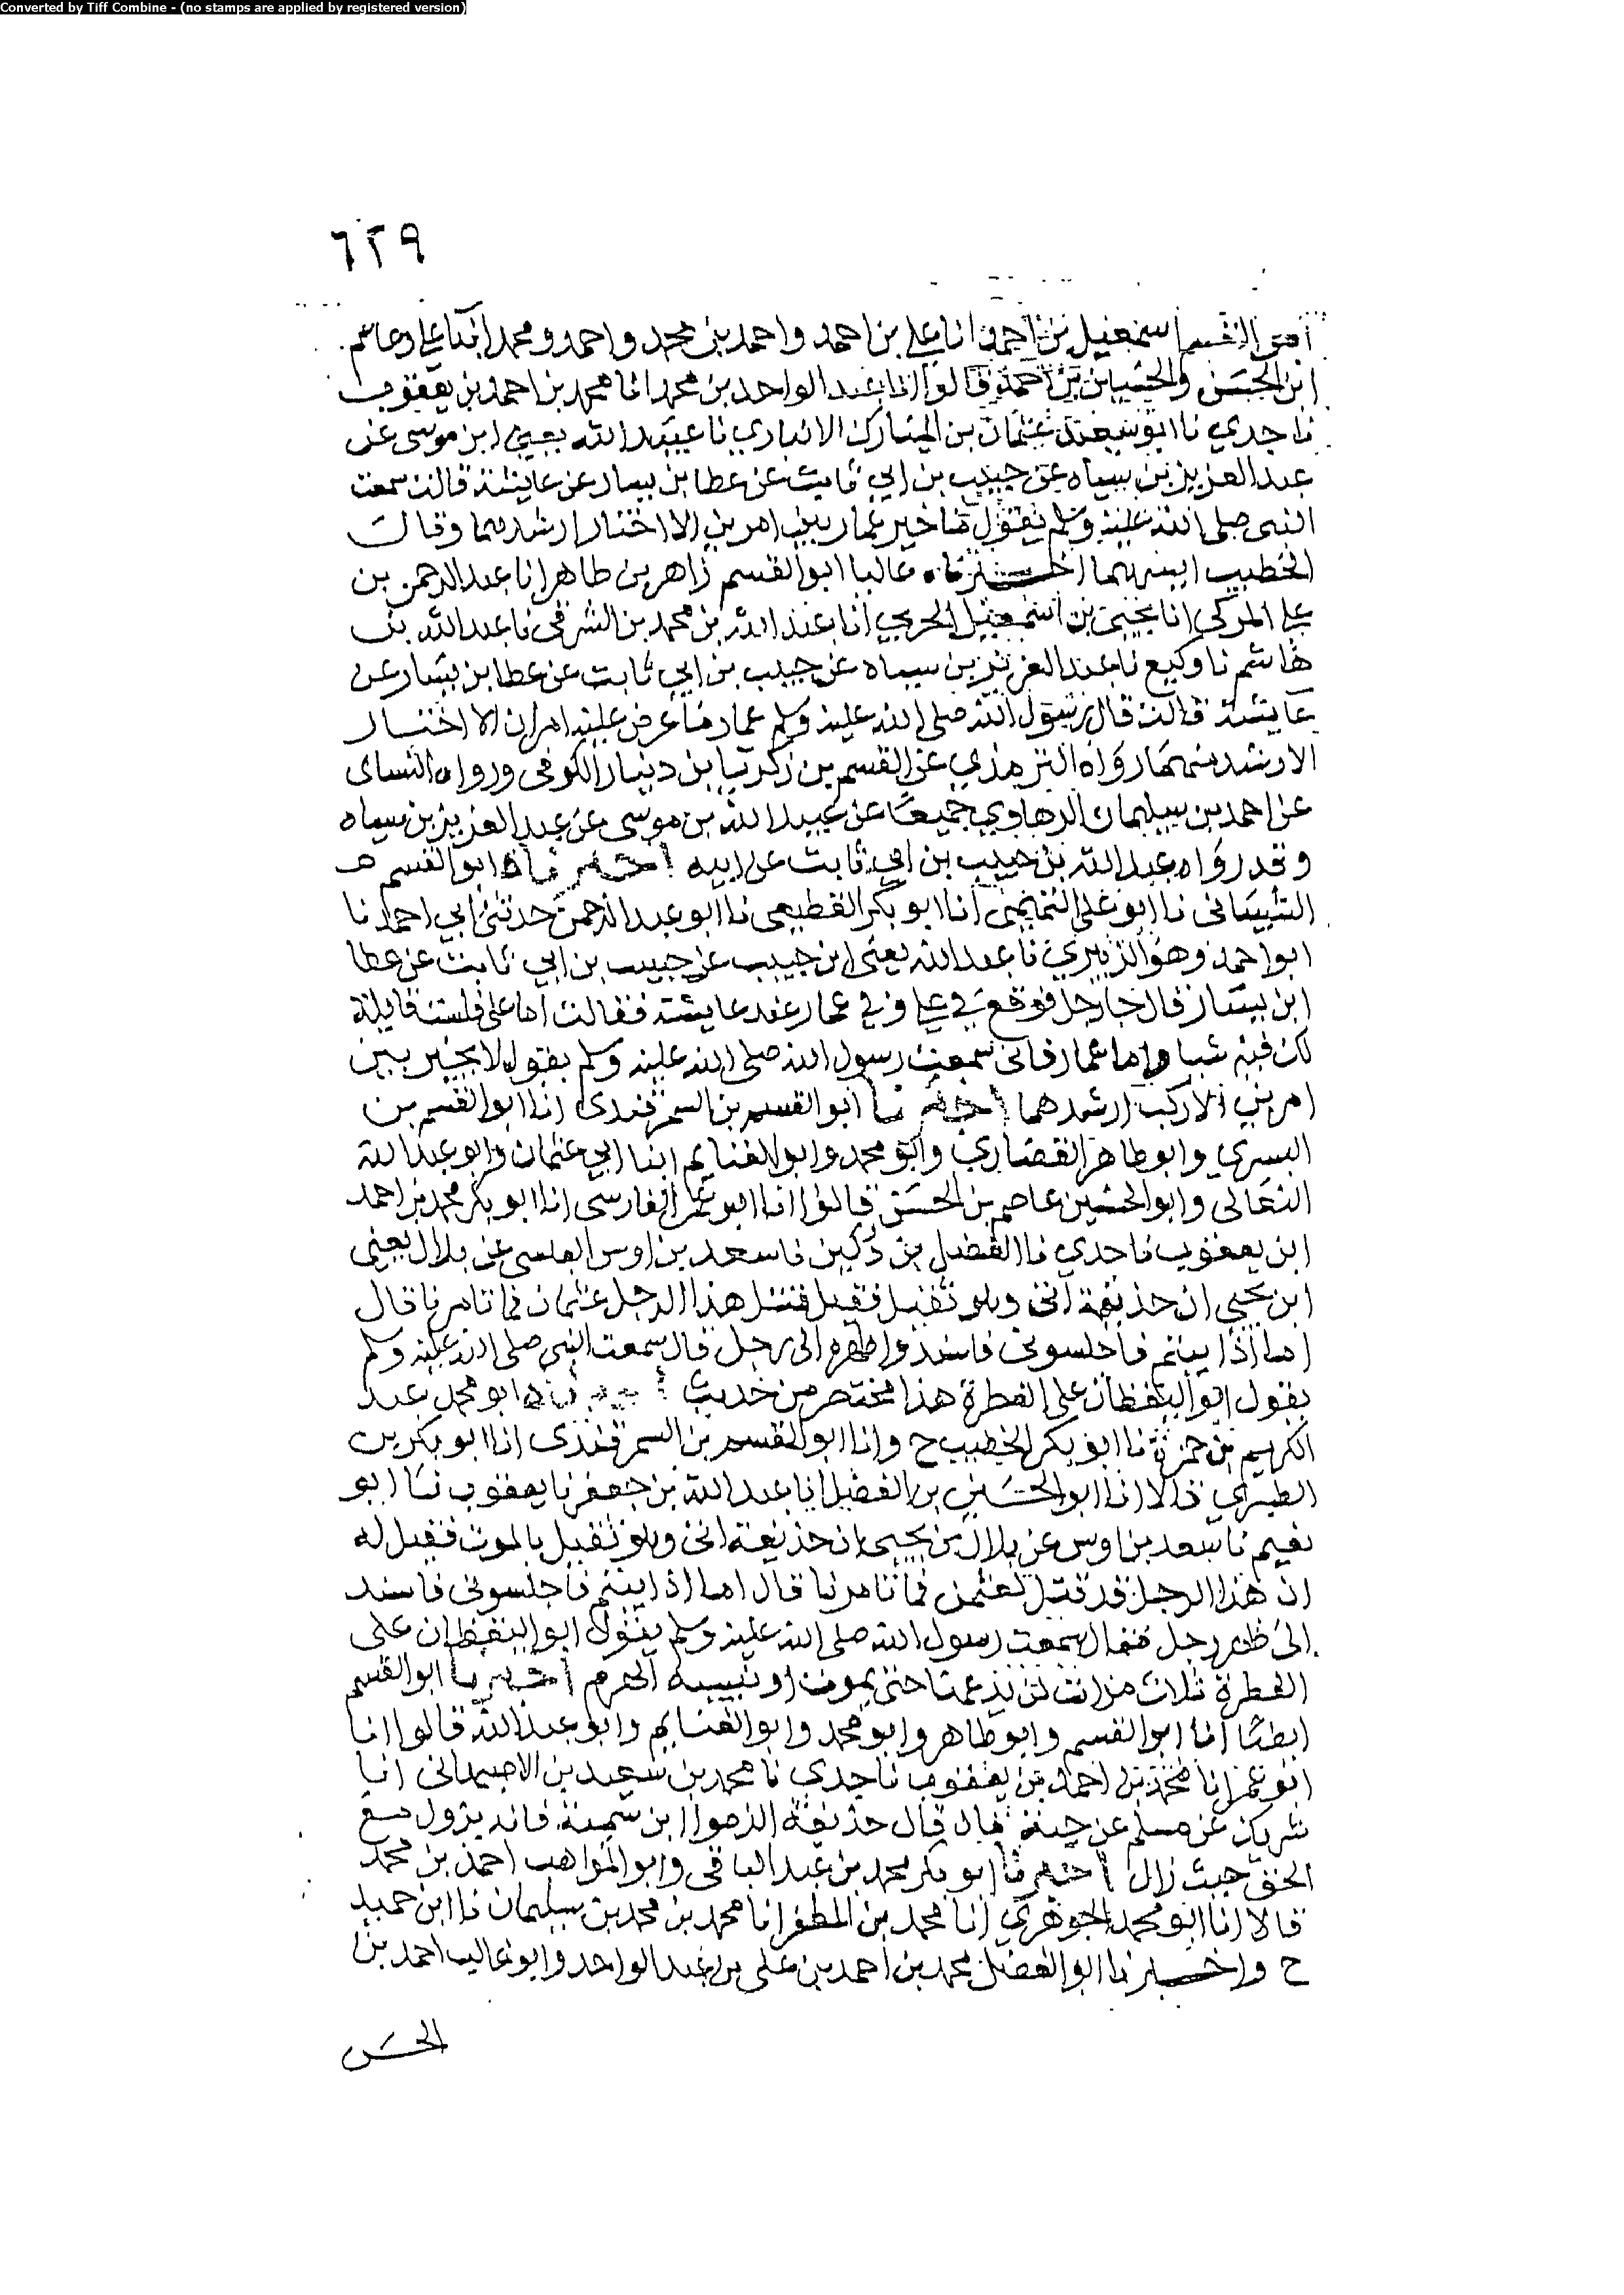 Converted by Tiff Combine - (no stamps are applied by registered version)
٦٢٩
ابو القسم اسمعيل بن احمد انا علي بن احمد واحمد بن محمد واحمد ومحمد ابنا علي وعاصم
ابن الحسن والحسين بن احمد قالوا انا عبد الواحد بن محمد انا محمد بن احمد بن يعقوب
نا جدي نا ابو سعيد عثمان بن المبارك الانباري نا عبيد الله يعني ابن موسى عن
عبد العزيز بن سياه عن حبيب بن ابي ثابت عن عطا بن يسار عن عايشة قالت سمعت
النبي صلى الله عليه وسلم يقول ما خير عمار بين امرين الا اختار ارشدهما وقال
الخطيب ايسرهما اخبرناه عاليا ابو القسم زاهر بن طاهر انا عبد الرحمن بن
علي المزكي انا يحيى بن اسمعيل الحربي انا عبد الله بن محمد بن الشرقي نا عبد الله بن
هاشم نا وكيع نا عبد العزيز بن سياه عن حبيب بن ابي ثابت عن عطا بن يسار عن
عايشة قالت قال رسول الله صلى الله عليه وسلم عمار ما عرض عليه امران الا اختار
الارشد منهما رواه الترمذي عن القسم بن زكريا بن دينار الكوفي ورواه النساى
عن احمد بن سليمان الرهاوي جميعا عن عبيد الله بن موسى عن عبد العزيز بن سياه
وقد رواه عبد الله بن حبيب بن ابي ثابت عن ابيه اخبرناه ابو القسم
الشيباني نا ابو علي التميمي انا ابو بكر القطيعي نا ابو عبد الرحمن حدثني ابي احمد نا
ابو احمد وهو الزبيري نا عبد الله يعني ابن حبيب عن حبيب بن ابي ثابت عن عطا
ابن يسار قال جا رجل فوقع في علي وفي عمار عند عايشة فقالت اما علي فلست قايلة
لك فيه شيا واما عمار فاني سمعت رسول الله صلى الله عليه وسلم يقول لا يخير بين
امرين الا ركب ارشدهما اخبرنا ابو القسم بن السمرقندي انا ابو القسم بن
البسري وابو طاهر القصاري وابو محمد وابو الغنايم ابنا ابي عثمان وابو عبد الله
النعالي وابو الحسين عاصم بن الحسن قالوا انا ابو عمر الفارسي انا ابو بكر محمد بن احمد
ابن يعقوب نا جدي نا الفضل بن دكين نا سعد بن اوس العبسي عن بلال يعني
ابن يحيى ان حذيفة اتى وهو ثقيل فقيل قتل هذا الرجل عثمان فما تامرنا قال
اما اذا ابيتم فاجلسوني فاسندوا ظهره الى رجل قال سمعت النبي صلى الله عليه وسلم
يقول ابو اليقظان على الفطرة هذا مختصر من حديث اخبرناه ابو محمد عبد
الكريم بن حمزة نا ابو بكر الخطيب ح وانا ابو القسم بن السمرقندي انا ابو بكر بن
الطبري قالا انا ابو الحسين بن الفضل انا عبد الله بن جعفر نا يعقوب نا ابو
نعيم نا سعد بن اوس عن بلال بن يحيى ان حذيفة اتى وهو ثقيل بالموت فقيل له
ان هذا الرجل قد قتل لعثمن فما تامرنا قال اما اذا ابيتم فاجلسوني فاسند
الى ظهر رجل فقال سمعت رسول الله صلى الله عليه وسلم يقول ابو اليقظان على
الفطرة ثلاث مرات لن يدعها حتى يموت او ينسيه الهرم اخبرنا ابو القسم
ايضا انا ابو القسم وابو طاهر وابو محمد وابو الغنايم وابو عبد الله قالوا انا
ابو عمر انا محمد بن احمد بن يعقوب نا جدي نا محمد بن سعيد بن الاصبهاني انا
شريك عن مسلم عن حبة قال قال حذيفة الزموا ابن سمية فانه يزول مع
الحق حيث زال اخبرنا ابو بكر محمد بن عبد الباقي وابو المواهب احمد بن محمد
قالا انا ابو محمد الجوهري انا محمد بن المظفر انا محمد بن محمد بن سليمان نا ابن حميد
ح واخبرنا ابو الفضل محمد بن احمد بن علي بن عبد الواحد وابو غالب احمد بن
الحسن